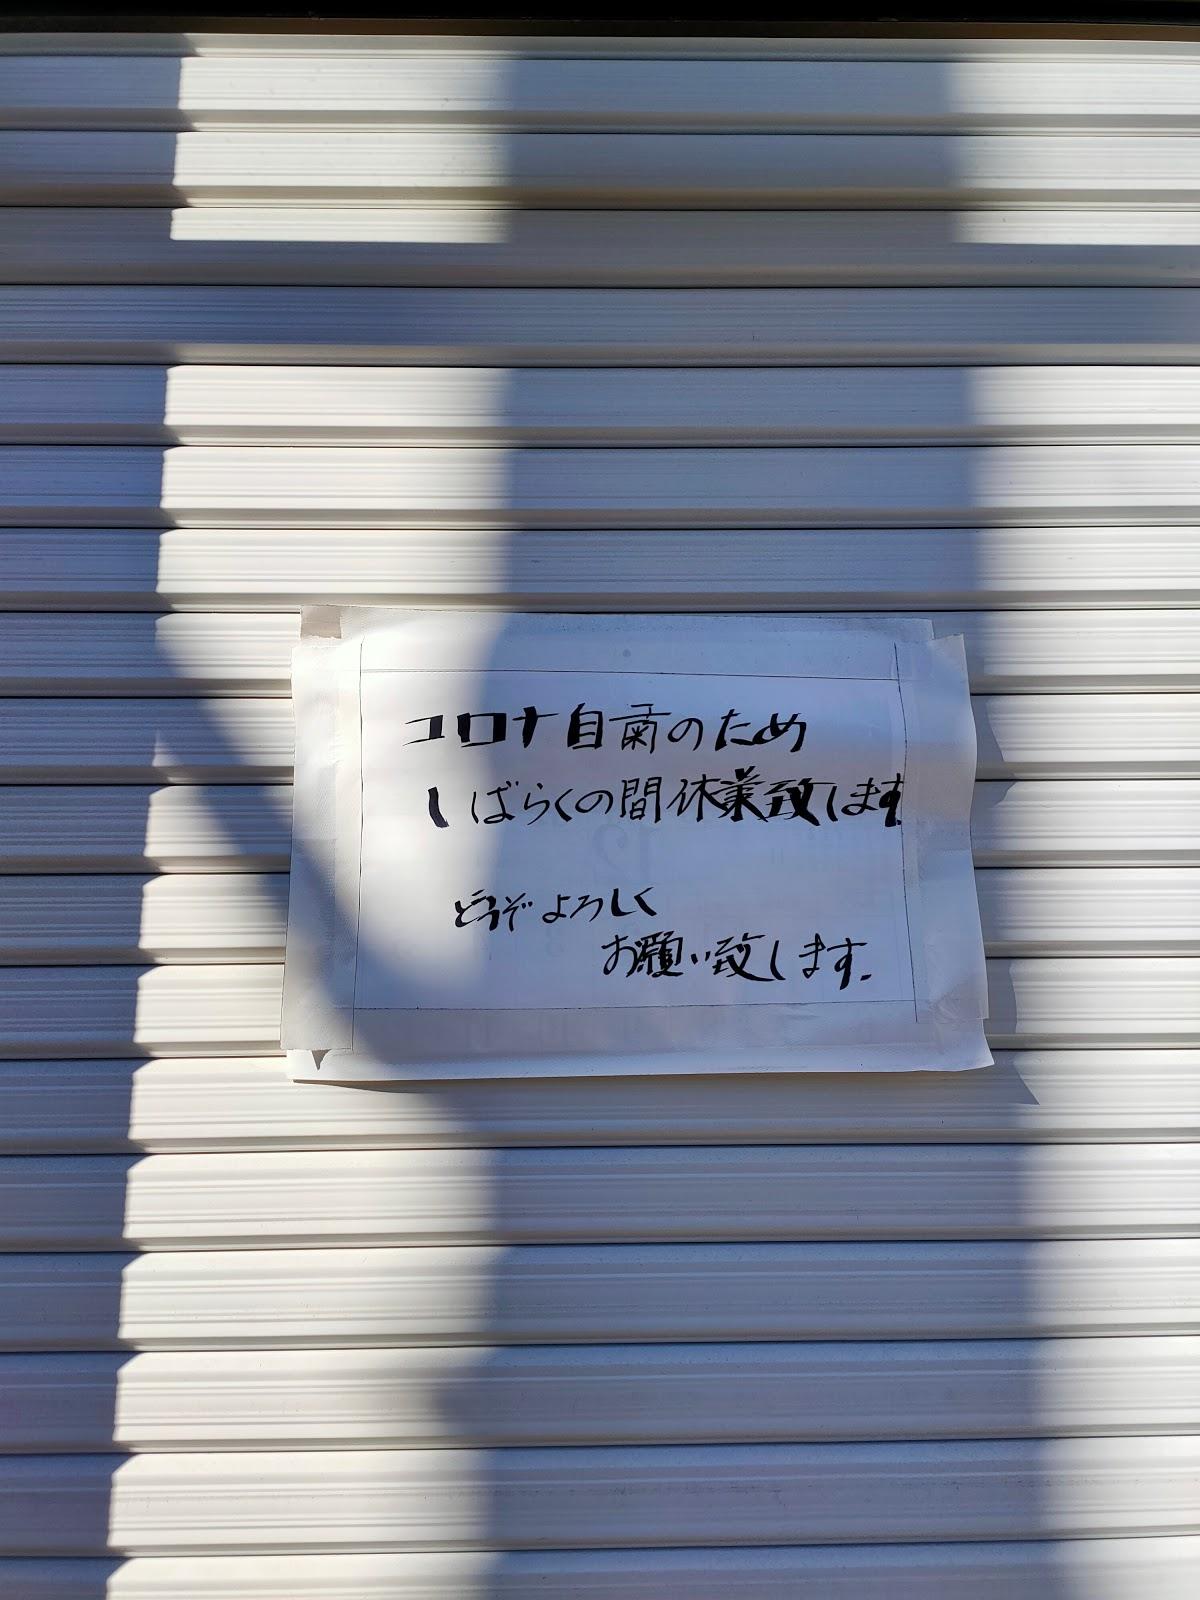 コロナ自粛のため
しばらくの間休業致します
どうぞよろしく
お願い致します.